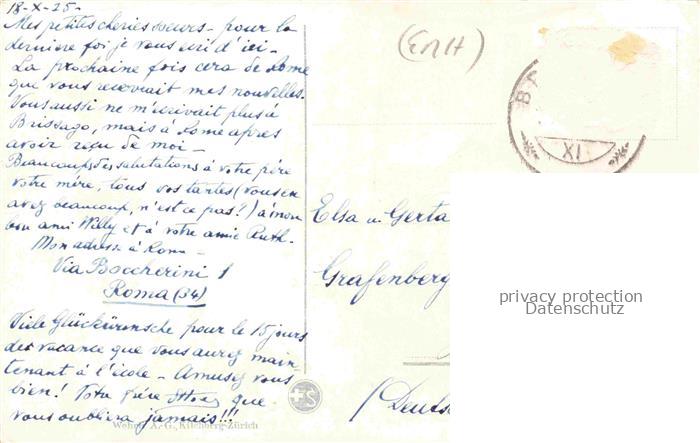 18-X-25-
Mes petites cheries soeurs - pour la
derniere foi je vous ecri d'ici -
La prochaine fois cera de Rome
que vous receverait mes nouvelles.
Vous aussi ne m'ecrivait plus à
Brissago, mais à Rome apres
avoir reçu de moi -
Beaucoup des salutations à vôtre père
vôtre mère, tous vos tantes (vous en
avez beaucoup, n'est ce pas?) à mon
bon ami Willy et à vôtre amie Ruth.
Mon adresse à Rome -
Via Boccherini 1
Roma (34)
Viele Glückwünsche pour le 15 jours
de vacance que vous aurez main-
tenant à l'école - Amusez vous
bien! Votre frère que
vous oubliera jamais!!!
Wehrli A.-G., Kilchberg-Zürich
(EMH)
B
XI
Elsa u. Gerta
Grafenberg
(Deuts
privacy protection
Datenschutz